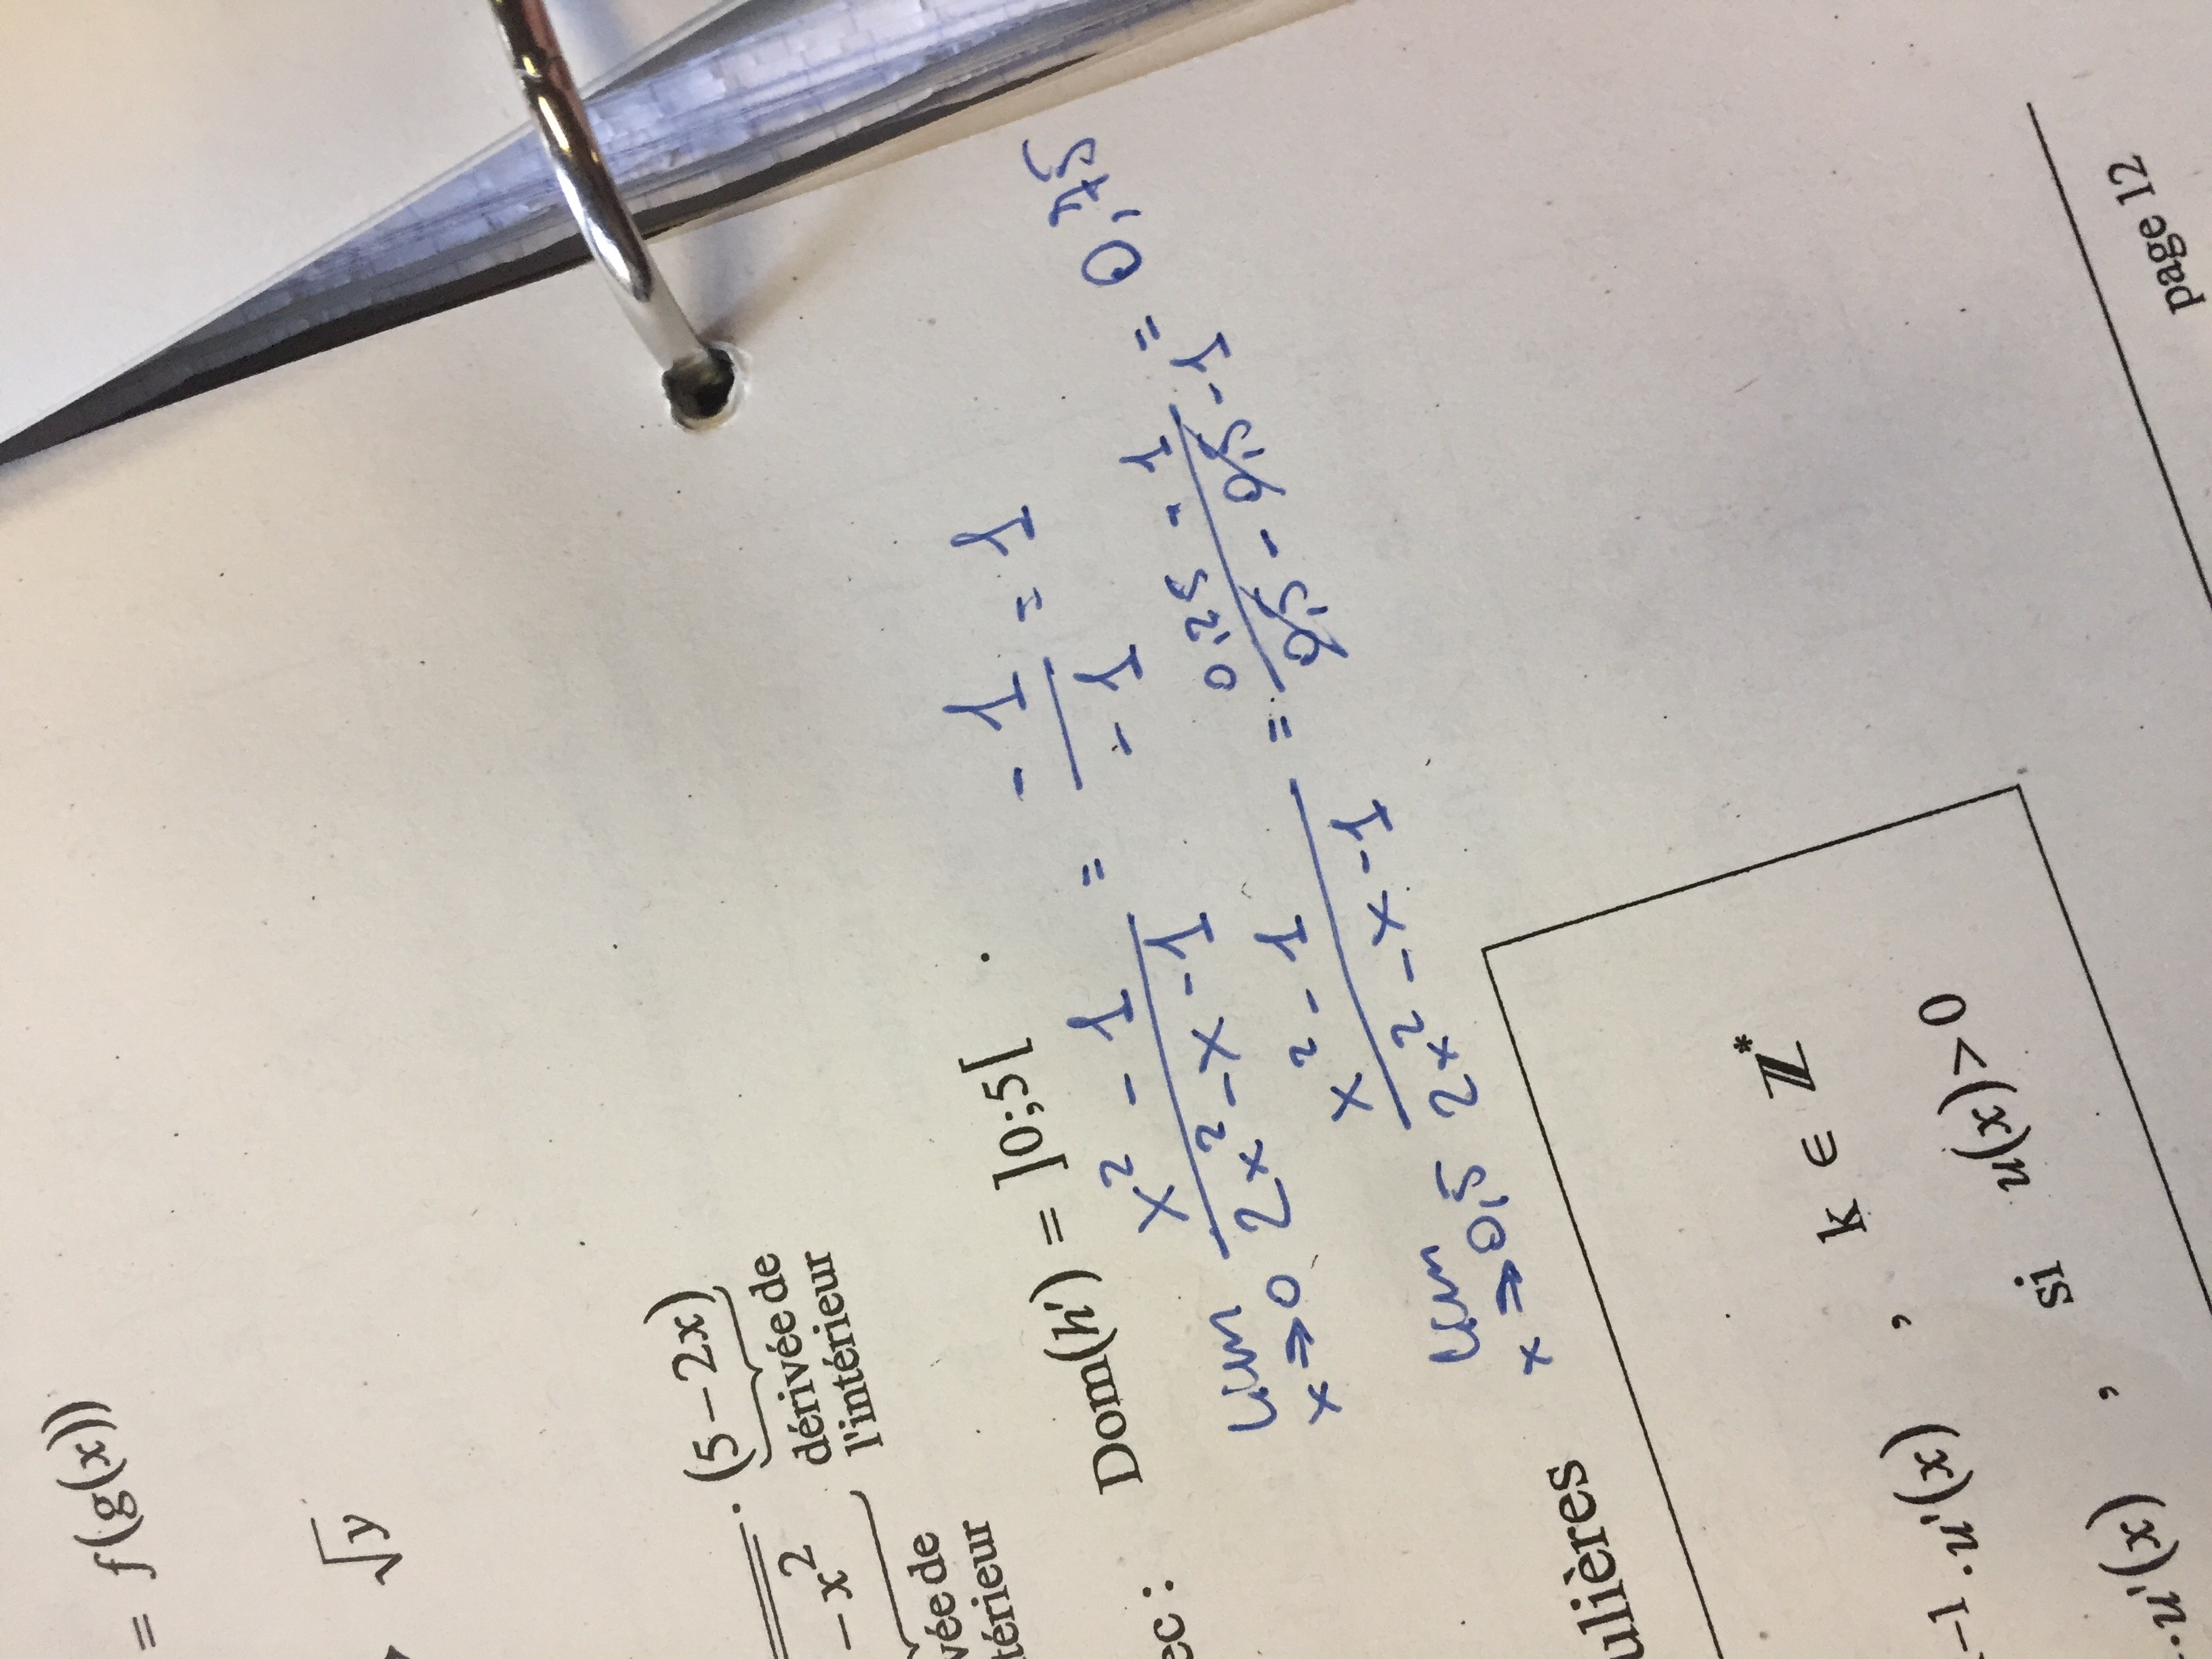 = f(g(x))
√y
− x² · (5 − 2x)
dérivée de
l'intérieur
vée de
térieur
ec : Dom(h') = ]0;5[
lim x→0 (x² - 1)/(2x² - x - 1) = (- 1)/(- 1) = 1
lim x→0,5 (x² - 1)/(2x² - x - 1) = (0,25 - 1)/(0,5 - 0,5 - 1) = 0,75
ulières
−1 · u'(x) , k ∈ ℤ*
· u'(x) , si u(x) > 0
page 12